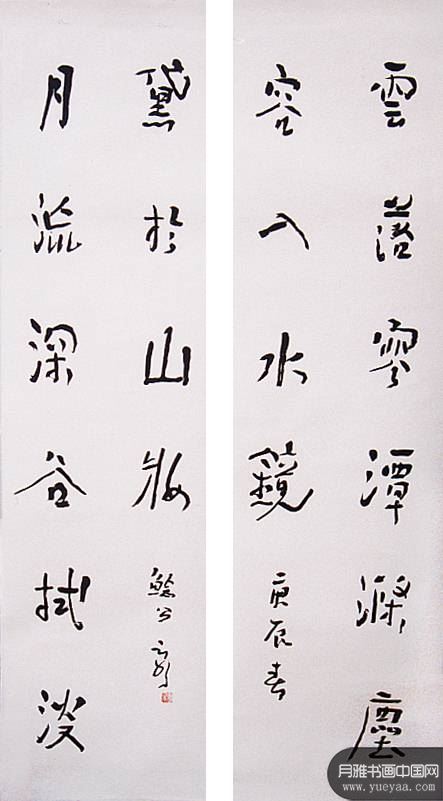 雲落寒潭滌塵
容入水鏡
庚辰春
月流深谷拭淡
黛於山妝
月雅书画中国网
www.yueyaa.com